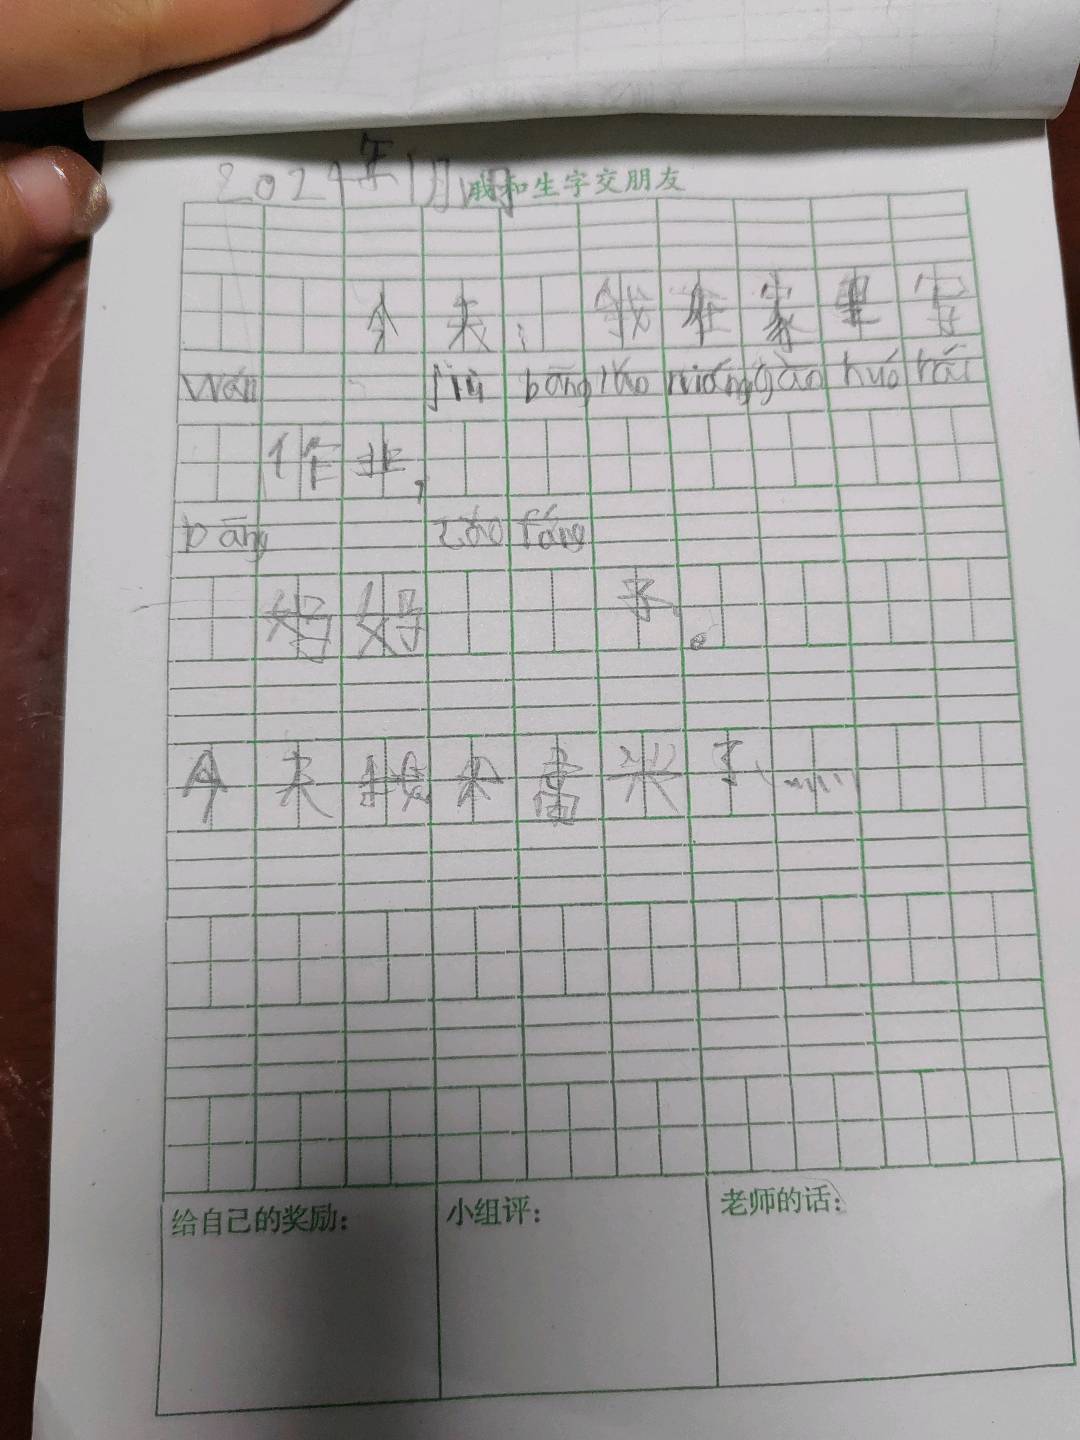 2024年1月
我和生字交朋友
今天,我在家里写
wán jiù bāng lǎo niáng gào huó hái
作业,
bāng zǎo fáng
妈好子。
今天我本书米了……
给自己的奖励: 小组评: 老师的话: